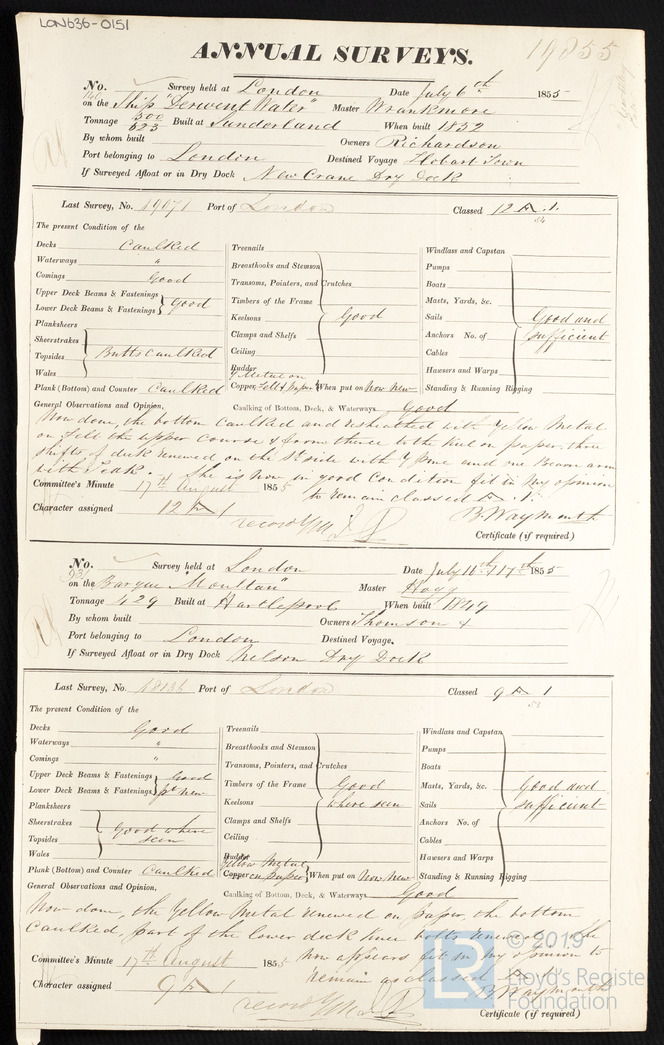 LON636-0151
ANNUAL SURVEYS.
19055
No. Survey held at London Date July 6th 1855
on the Ship "Derwent Water" Master Wrankmore
Tonnage 500 523 Built at Sunderland When built 1852
By whom built Owners Richardson
Port belonging to London Destined Voyage Hobart Town
If Surveyed Afloat or in Dry Dock New Crane Dry Dock
Last Survey, No. 19071 Port of London Classed 12 A 1
54
The present Condition of the
Decks Caulked
Waterways "
Comings Good
Upper Deck Beams & Fastenings
Lower Deck Beams & Fastenings } Good
Planksheers
Sheerstrakes
Topsides } Butts caulked
Wales
Plank (Bottom) and Counter Caulked
Treenails
Breasthooks and Stemson
Transoms, Pointers, and Crutches
Timbers of the Frame
Keelsons } Good
Clamps and Shelfs
Ceiling
Rudder
Y Metal on
Copper, Felt & paper } When put on Now New
Caulking of Bottom, Deck, & Waterways Good
Windlass and Capstan
Pumps
Boats
Masts, Yards, &c.
Sails } Good and
Anchors No. of sufficient
Cables
Hawsers and Warps
Standing & Running Rigging
General Observations and Opinion,
Now done, the bottom caulked and resheathed with Yellow Metal
on felt the upper course & from thence to the keel on paper, three
shifts of deck renewed on the St side with Y pine and one Beam arm
with Teak. She is now in good condition fit in my opinion
to remain classed A 1.
Committee's Minute 17th August 1855
Character assigned 12 A 1
B Waymouth
Certificate (if required)
No. Survey held at London Date July 16th & 17th 1855
on the Barque "Moultan" Master Hogg
Tonnage 429 Built at Hartlepool When built 1849
By whom built Owners Thomson &
Port belonging to London Destined Voyage.
If Surveyed Afloat or in Dry Dock Nelson Dry Dock
Last Survey, No. 18136 Port of London Classed 9 A 1
53
The present Condition of the
Decks Good
Waterways "
Comings "
Upper Deck Beams & Fastenings } Good
Lower Deck Beams & Fastenings } pt New
Planksheers
Sheerstrakes } Good where
Topsides seen
Wales
Plank (Bottom) and Counter Caulked
Treenails
Breasthooks and Stemson
Transoms, Pointers, and Crutches
Timbers of the Frame } Good
Keelsons where seen
Clamps and Shelfs
Ceiling
Rudder
Yellow Metal
Copper on paper } When put on Now New
Caulking of Bottom, Deck, & Waterways Good
Windlass and Capstan
Pumps
Boats
Masts, Yards, &c. } Good and
Sails sufficient
Anchors No. of
Cables
Hawsers and Warps
Standing & Running Rigging
General Observations and Opinion,
Now done, the Yellow Metal renewed on paper, the bottom
Caulked, part of the lower deck knee bolts renewed. She
now appears fit in my opinion to
remain as classed A 1
Committee's Minute 17th August 1855
Character assigned 9 A 1
B Waymouth
Certificate (if required)
LR
© 2019
Lloyd's Register
Foundation